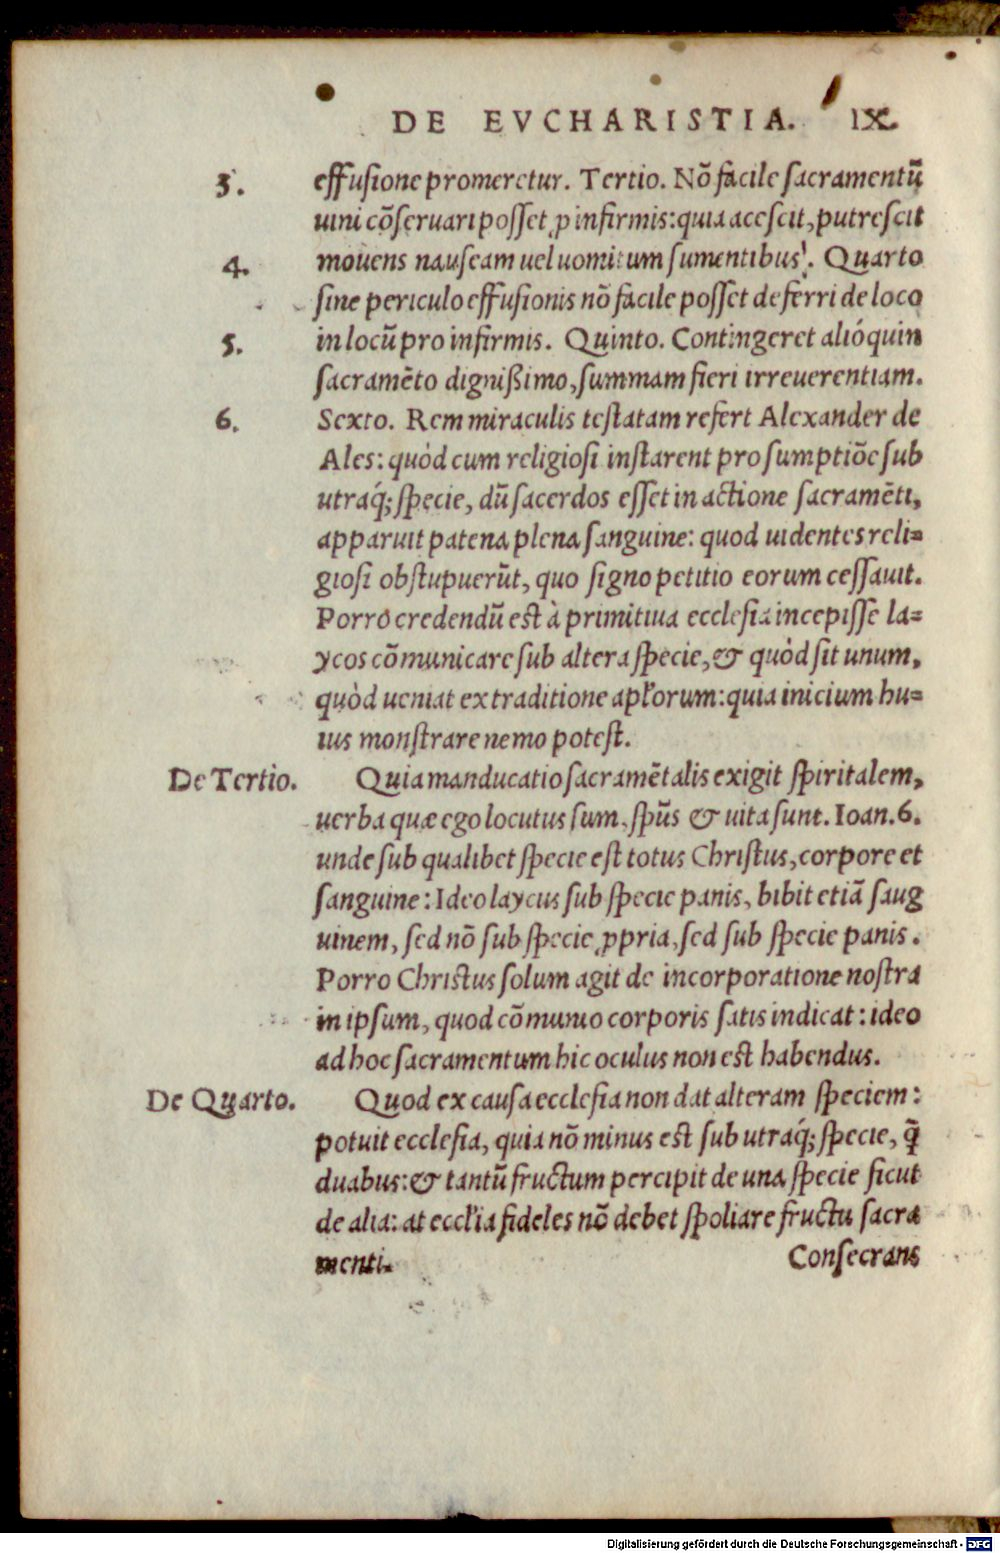 DE EVCHARISTIA. IX.
3. effusione promeretur. Tertio. Nō facile sacramentū
uini cōseruari posset ꝓ infirmis: quia acescit, putrescit
mouens nauseam uel uomitum sumentibus. Quarto
4. sine periculo effusionis nō facile posset deferri de loco
5. in locū pro infirmis. Quinto. Contingeret alióquin
sacramēto dignißimo, summam fieri irreuerentiam.
6. Sexto. Rem miraculis testatam refert Alexander de
Ales: quòd cum religiosi instarent pro sumptiōe sub
utraq́; specie, dū sacerdos esset in actione sacramēti,
apparuit patena plena sanguine: quod uidentes reli=
giosi obstupuerūt, quo signo petitio eorum cessauit.
Porro credendū est à primitiua ecclesia incepisse la=
ycos cōmunicare sub altera specie, & quòd sit unum,
quòd ueniat ex traditione apƚorum: quia inicium hu=
ius monstrare nemo potest.
De Tertio. Quia manducatio sacramētalis exigit spiritalem,
uerba quæ ego locutus sum, spūs & uita sunt. Ioan. 6.
unde sub qualibet specie est totus Christus, corpore et
sanguine: Ideo laycus sub specie panis, bibit etiā saug
uinem, sed nō sub specie ꝓpria, sed sub specie panis.
Porro Christus solum agit de incorporatione nostra
in ipsum, quod cōmunio corporis satis indicat: ideo
ad hoc sacramentum hic oculus non est habendus.
De Quarto. Quod ex causa ecclesia non dat alteram speciem:
potuit ecclesia, quia nō minus est sub utraq́; specie, q̄
duabus: & tantū fructum percipit de una specie sicut
de alia: at eccƚia fideles nō debet spoliare fructu sacra
menti.
Consecrans
Digitalisierung gefördert durch die Deutsche Forschungsgemeinschaft - DFG